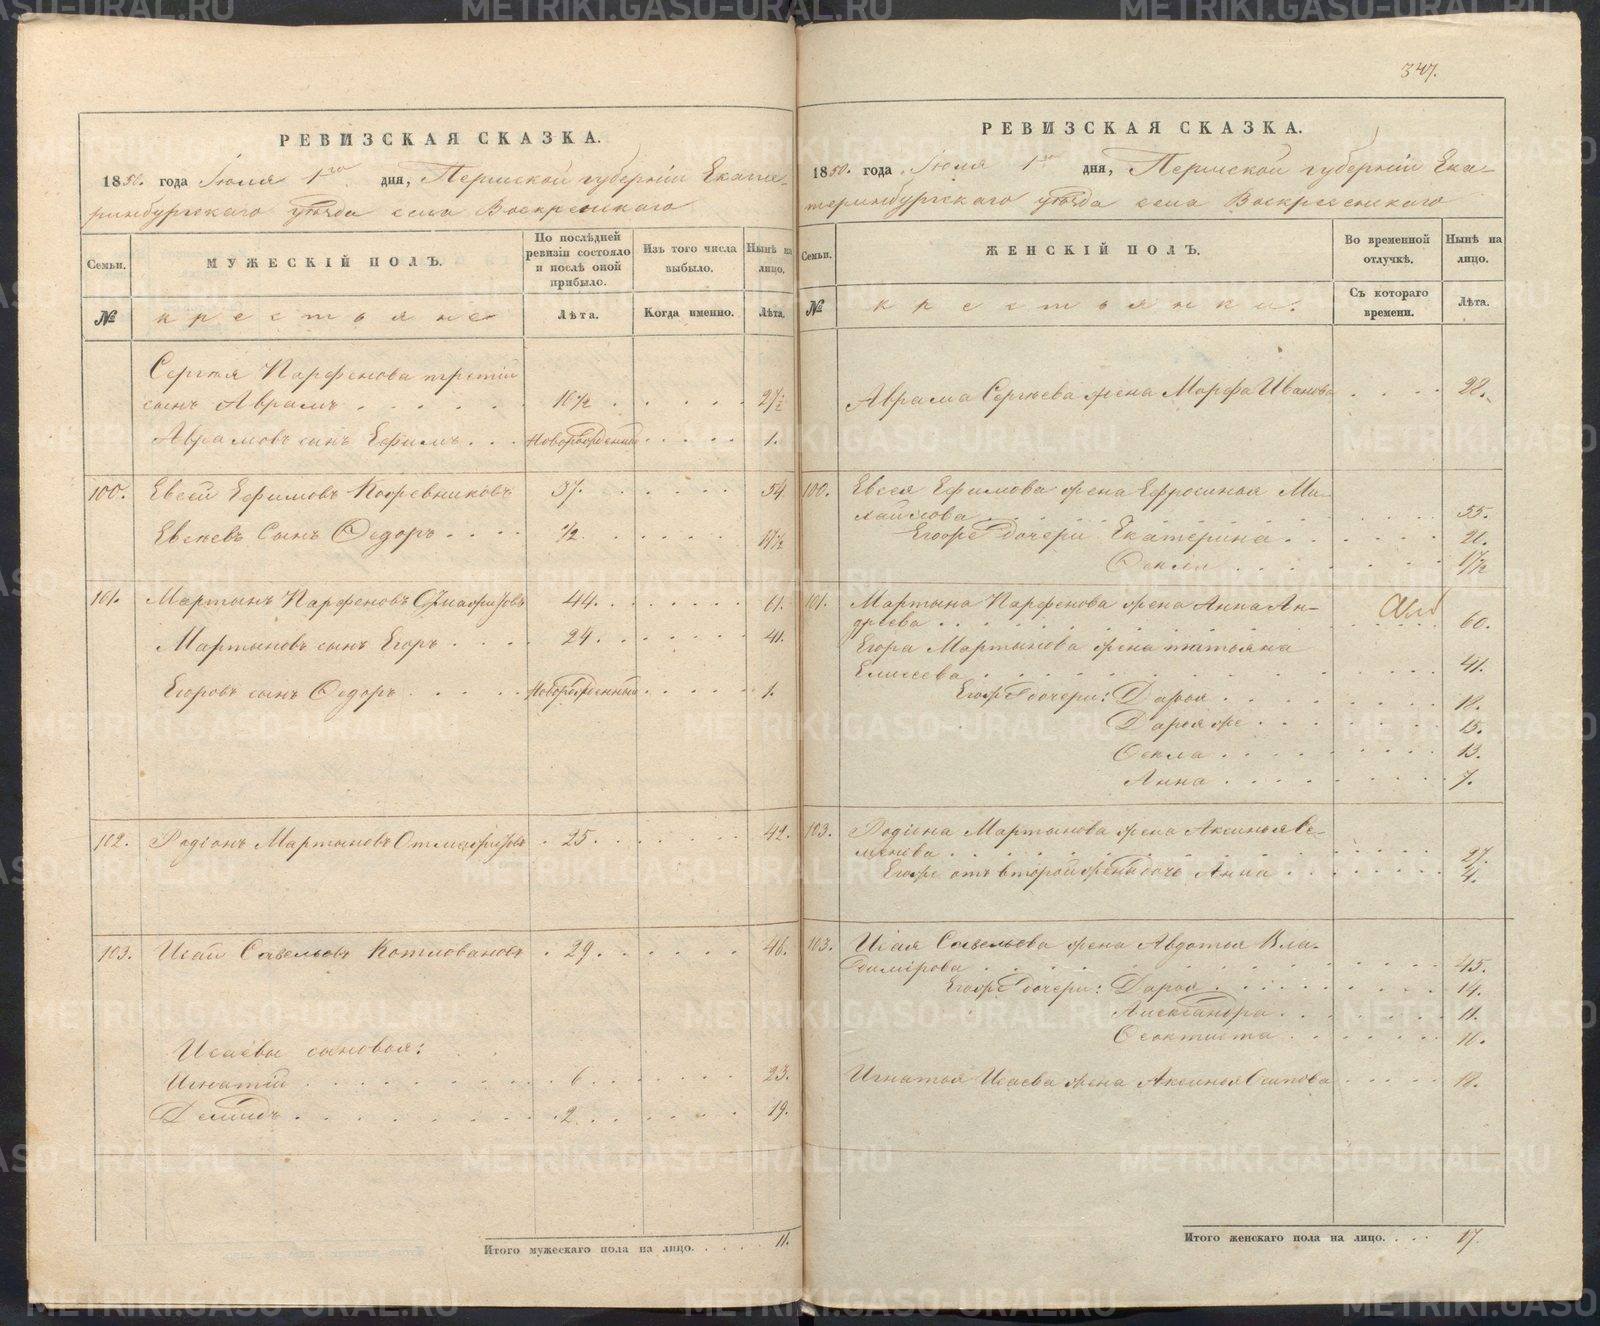 347.
РЕВИЗСКАЯ СКАЗКА.
1850. года Іюля 1го дня, Пермской губерніи Екате-
ринбургскаго уѣзда села Воскресенскаго
Семьи.
МУЖЕСКІЙ ПОЛЪ.
По послѣдней ревизіи состояло и послѣ оной прибыло.
Изъ того числа выбыло.
Нынѣ на лицо.
№
крестьяне
Лѣта.
Когда именно.
Лѣта.
Сергѣя Парфенова третій
сынъ Аврамъ . . . 10½ . . . 27½
Аврамовъ сынъ Ефимъ . . . Новорожденный . . . 1.
100. Евсей Ефимовъ Кофевниковъ 37. . . . 54
Евсѣевъ сынъ Ѳедоръ . . . ½ . . . 17½
101. Мартынъ Парфеновъ 44. . . . 61.
Мартыновъ сынъ Егоръ . . . 24. . . . 41.
Егоровъ сынъ Ѳедоръ . . . Новорожденный . . . 1.
102. Родіонъ Мартыновъ . 25. . . . 42.
103. Исай Савельевъ Котловановъ . 29. . . . 46.
Исаевы сыновья:
Игнатій . . . 6 . . . 23.
Демидъ . . . 2 . . . 19.
Итого мужескаго пола на лицо. . . . 11.
РЕВИЗСКАЯ СКАЗКА.
1850. года Іюля 1го дня, Пермской губерніи Ека-
теринбургскаго уѣзда села Воскресенскаго
Семьи.
ЖЕНСКІЙ ПОЛЪ.
Во временной отлучкѣ.
Нынѣ на лицо.
№
крестьянки.
Съ котораго времени.
Лѣта.
Аврама Сергѣева жена Марфа Иванова . . . 28.
100. Евсея Ефимова жена Ефросинья Ми-
хайлова . . . 55.
Егоже дочери Екатерина . . . 21.
Ѳекла . . .
101. Мартына Парфенова жена Анна Ан-
дреева . . . 60.
Егора Мартынова жена татьяна
Елисеева . . . 41.
Егоже дочери: Дарья . . . 18.
Дарья же . . . 15.
Ѳекла . . . 13.
Анна . . . 7.
103. Родіона Мартынова жена Аксинья Се-
менова . . . 27.
Егоже отъ второй жены дочь Анна . . . 4.
103. Исая Савельева жена Авдотья Вла-
димірова . . . 45.
Егоже дочери: Дарья . . . 14.
Александра . . . 11.
Ѳеоктиста . . . 10.
Игнатья Исаева жена Аксинья Осипова . . . 18.
Итого женскаго пола на лицо. . . . 17.
METRIKI.GASO-URAL.RU